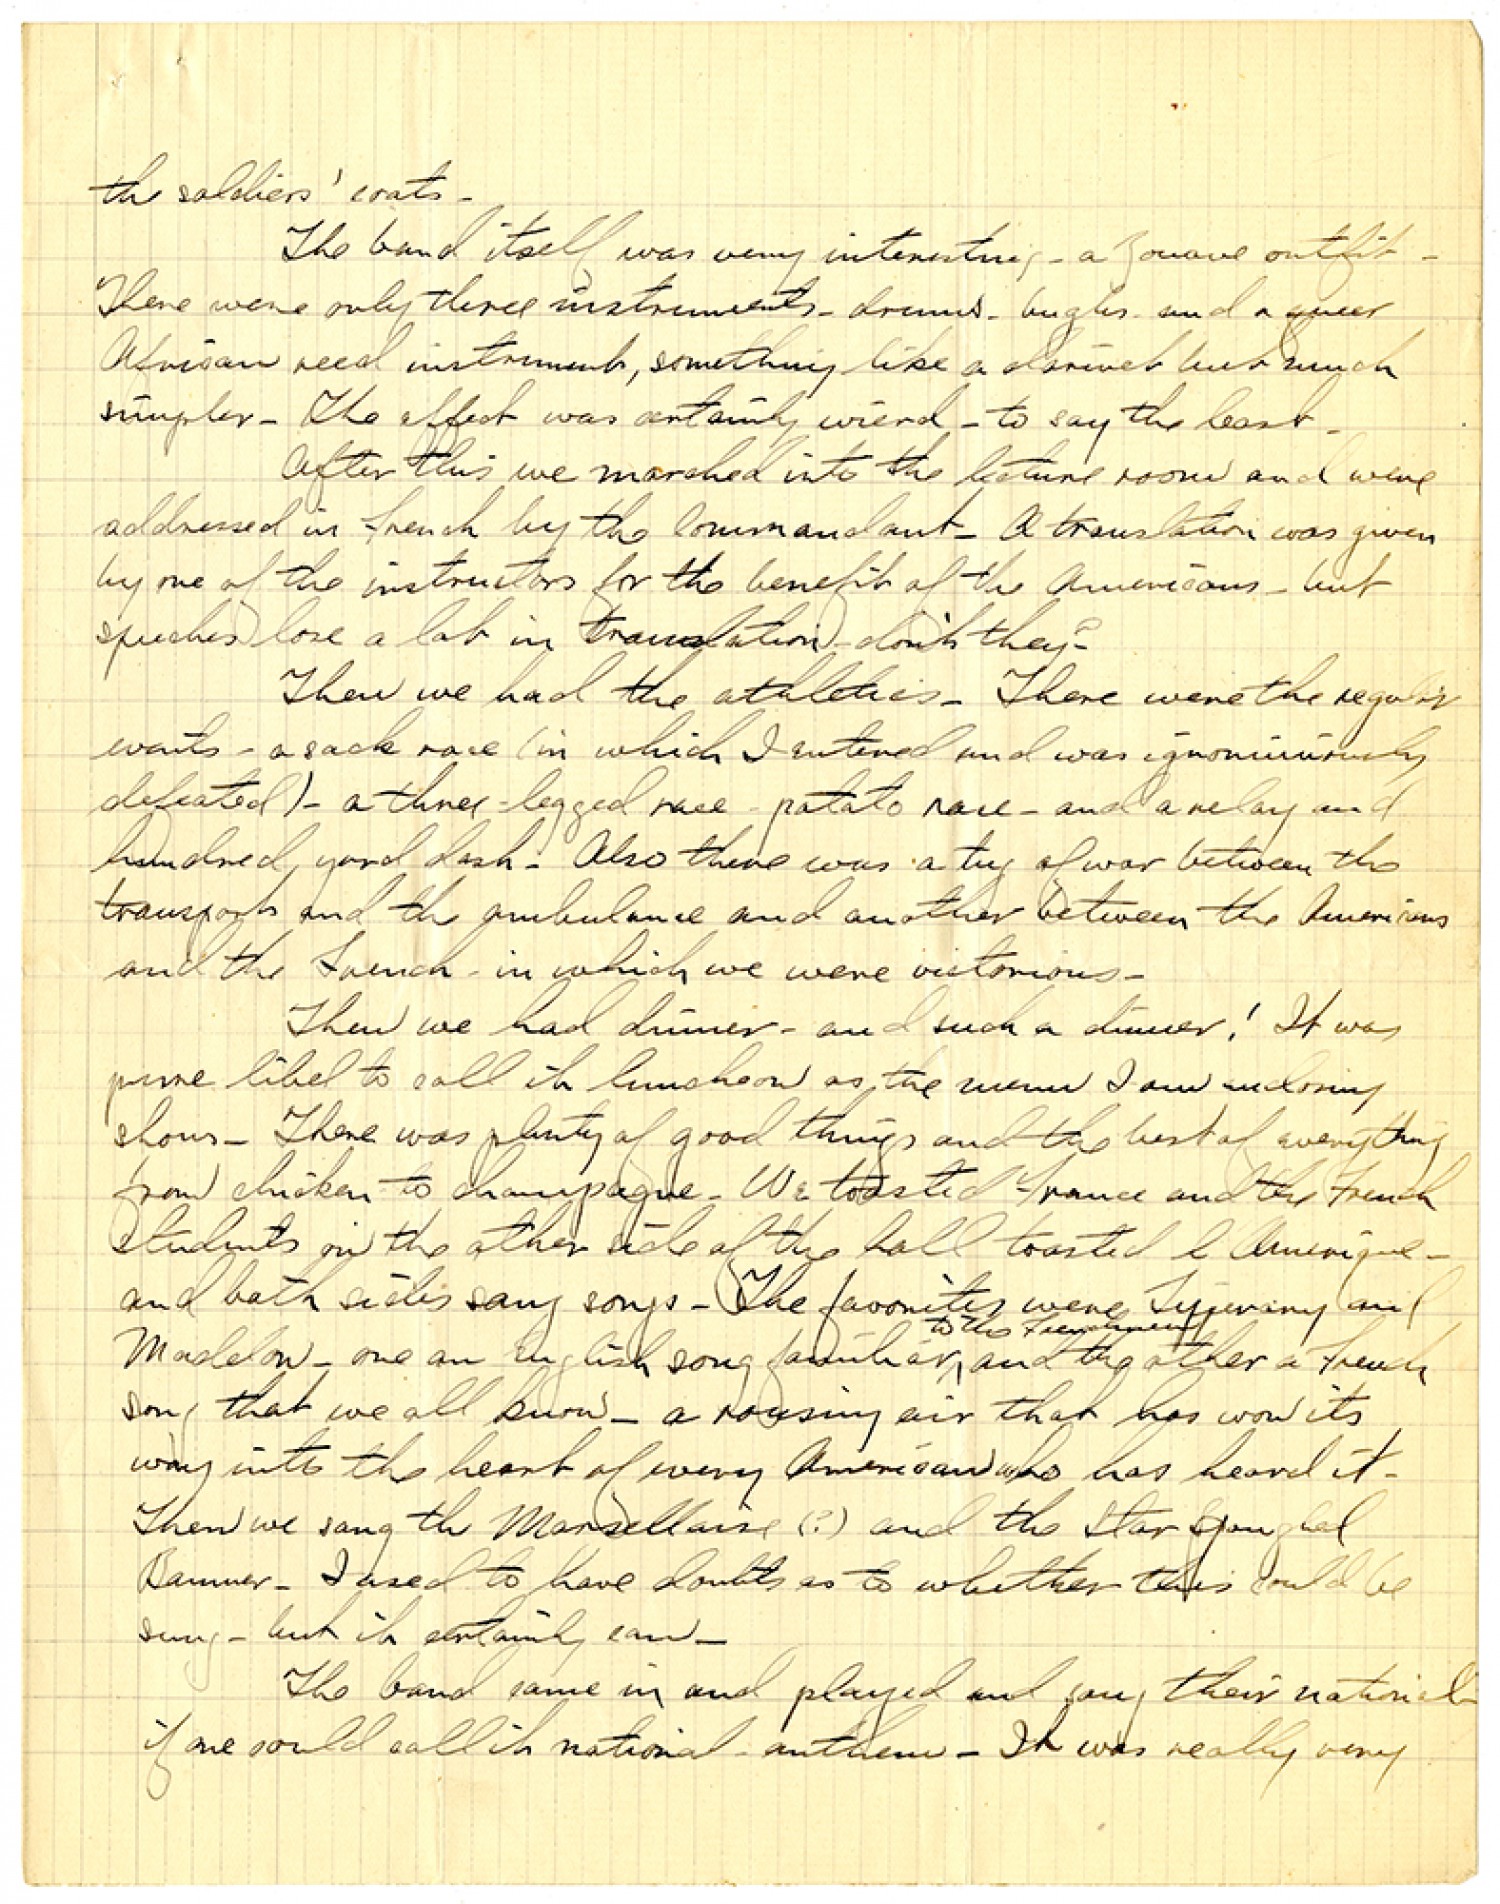 the soldiers' coats -
The band itself was very interesting - a Zouave outfit -
There were only three instruments - drums - bugles - and a queer
African reed instrument, something like a clarinet but much
simpler - The effect was certainly wierd - to say the least -
After this we marched into the lecture room and were
addressed in French by the Commandant - A translation was given
by one of the instructors for the benefit of the Americans - but
speeches lose a lot in translation - don't they?
Then we had the athletics - There were the regular
events - a sack race (in which I entered and was ignominiously
defeated) - a three-legged race - potato race - and a relay and
hundred yard dash - Also there was a tug of war between the
transports and the ambulance and another between the Americans
and the French - in which we were victorious -
Then we had dinner - and such a dinner! It was
pure libel to call it luncheon as the menu I am enclosing
shows - There was plenty of good things and the best of everything
from chicken to champagne - We toasted France and the French
students on the other side of the hall toasted l'Amerique -
and both sides sang songs - The favorites were Tipperary and
to the Frenchmen
Madelon - one an English song familiar ^ and the other a French
song that we all know - a rousing air that has won its
way into the heart of every American who has heard it -
Then we sang the Marsellaise (?) and the Star Spangled
Banner - I used to have doubts as to whether this could be
sung - but it certainly can -
The band came in and played and sang their national -
if one could call it national - anthem - It was really very